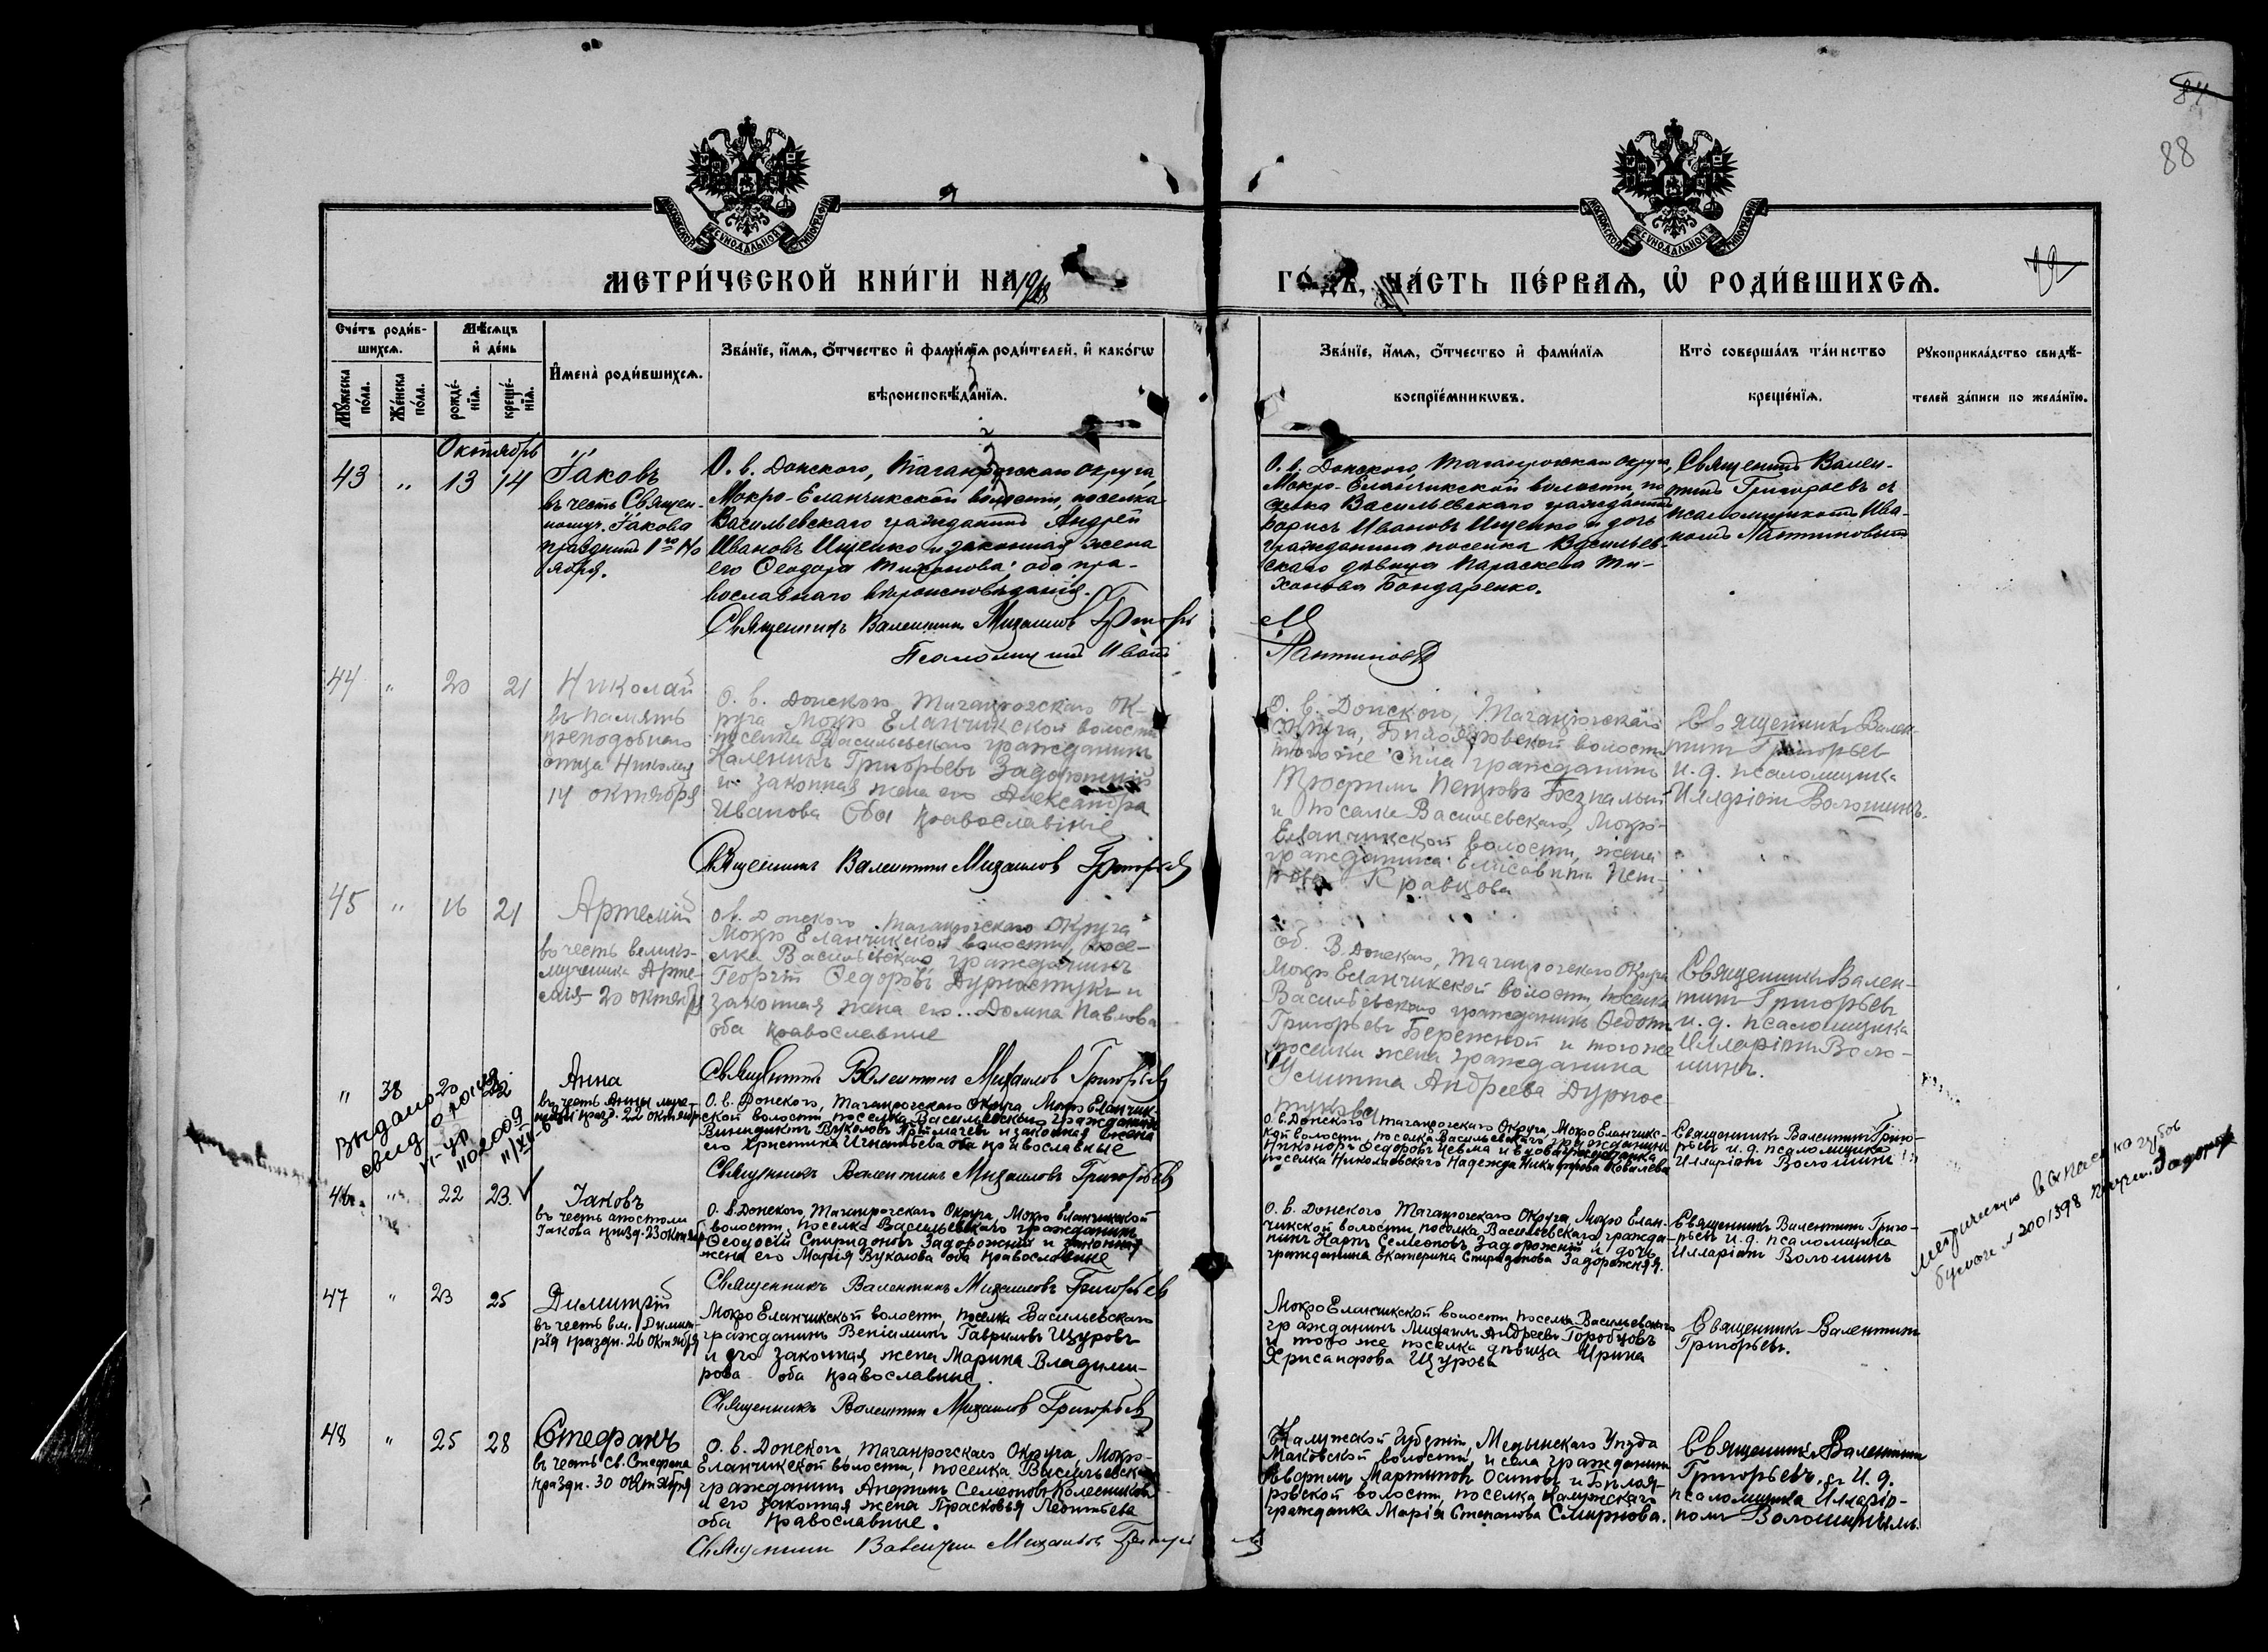 84
88
МОСКОВСКОЙ СУНОДАЛЬНОЙ ТИПОГРАФІИ
МОСКОВСКОЙ СУНОДАЛЬНОЙ ТИПОГРАФІИ
МЕТРИ́ЧЕСКОЙ КНИ́ГИ НА 1918
ГО́ДЪ, ЧА́СТЬ ПЕ́РВАѦ, Ѡ҆ РОДИ́ВШИХСѦ.
Сче́тъ роди́в-
шихсѧ.
Мꙋ́жеска по́ла.
Же́нска по́ла.
Мѣ́сѧцъ
и҆ де́нь
рожде́-
нїѧ.
креще́-
нїѧ.
И҆мена̀ роди́вшихсѧ.
Зва́нїе, и҆́мѧ, ѻ҆́тчество и҆ фами́лїѧ роди́телей, и҆ како́гѡ
вѣроисповѣ́данїѧ.
Зва́нїе, и҆́мѧ, ѻ҆́тчество и҆ фами́лїѧ
воспрїе́мникѡвъ.
Кто̀ соверша́лъ та́инство
креще́нїѧ.
Рꙋкоприкла́дство свидѣ́-
телей за́писи по жела́нїю.
Октябрь
43 " 13 14
Іаковъ
въ честь Священ-
номуч. Іакова
празднит 1го Но
ября.
О. в. Донского, Таганрогскаго округа,
Мокро-Еланчикской волости, поселка
Васильевскаго гражданинъ Андрей
Ивановъ Ищенко и законная жена
его Ѳеодора Тихонова; оба пра-
вославнаго вѣроисповѣданія.
Священникъ Валентин Михаилов Григорьев
Псаломщикъ Иванъ
Лантиновъ
О. в. Донского, Таганрогскаго округа,
Мокро-Еланчикской волости, по
селка Васильевскаго гражданинъ
Борисъ Ивановъ Ищенко и дочь
гражданина поселка Васильев-
скаго дѣвица Параскева Ти-
хонова Бондаренко.
Священникъ Вален-
тинъ Григорьевъ съ
псаломщикомъ Ива-
номъ Лантиновымъ
44 " 20 21
Николай
въ память
преподобнаго
отца Николая
14 октября
О. в. Донского, Таганрогскаго Ок-
руга Мокро Еланчикской волости
поселка Васильевскаго гражданинъ
Каленикъ Григорьевъ Задорожній
и законная жена его Александра
Иванова Оба православніе
Священникъ Валентин Михаилов Григорьев
О. в. Донского, Таганрогскаго
Округа, волости
того же села гражданинъ
Трофимъ Петровъ Безпалый
и поселка Васильевскаго, Мокро-
Еланчикской волости, жена
гражданина Елисавета Пет-
рова Кравцова
Священникъ Вален-
тинъ Григорьев
и. д. псаломщика
Илларіонъ Волошинъ.
45 " 16 21
Артемій
въ честь велико-
мученика Арте-
мія 20 октября
О. в. Донского Таганрогскаго Округа
Мокро Еланчикской волости, посе-
лка Васильевскаго гражданинъ
Георгій Ѳедоровъ Дурностукъ и
законная жена его Домна Павлова
оба православные
Священникъ Валентин Михаилов Григорьев
об. В. Донского, Таганрогскаго Округа
Мокро Еланчикской волости, поселка
Васильевскаго гражданинъ Ѳедотъ
Григорьевъ Бережной и того же
поселка жена гражданина
Устинна Андреева Дурнос-
тукова
Священникъ Вален-
тинъ Григорьев
и. д. псаломщика
Илларіонъ Воло-
шинъ.
" 38 20 22
Выдано
свид о рожд
II-УР
1102009
11/XII-6
Анна
въ честь Анны муче-
ницы празд. 22 октября
О. в. Донского, Таганрогскаго Округа Мокро Еланчик-
ской волости поселка Васильевскаго гражданинъ
Винидиктъ Вуколовъ Примачевъ и законная жена
его Христина Игнатьева оба православные
Священникъ Валентинъ Михаиловъ Григорьевъ
О. в. Донского Таганрогскаго Округа, Мокро Еланчикс-
кой волости поселка Васильевскаго гражданинъ
Никаноръ Ѳедоровъ и вдова гражданка
поселка Николаевскаго Надежда Никифорова Ковалева
Священникъ Валентинъ Григо-
рьевъ и. д. псаломщика
Илларіонъ Волошинъ
46. " 22 23.
Іаковъ
въ честь апостола
Іакова празд. 23 октября
О. в. Донского, Таганрогскаго Округа, Мокро Еланчикской
волости, поселка Васильевскаго гражданинъ
Ѳеодосій Спиридоновъ Задорожній и законная
жена его Марія Вуколова оба православные
Священникъ Валентинъ Михаиловъ Григорьев
О. в. Донского Таганрогскаго Округа, Мокро Елан-
чикской волости поселка Васильевскаго гражда-
нинъ Карпъ Семеоновъ Задорожній и дочь
гражданина Екатерина Спиридонова Задорожняя.
Священникъ Валентинъ Григо-
рьевъ и. д. псаломщика
Илларіонъ Волошинъ
бумаги № 2001398
47 " 23 25
Димитрій
въ честь вм. Димит-
рія праздн. 26 Октября
Мокро Еланчикской волости, поселка Васильевскаго
гражданинъ Веніаминъ Гавриловъ Щуровъ
и его законная жена Марина Владими-
рова оба православные
Священникъ Валентин Михаилов Григорьев
Мокро Еланчикской волости поселка Васильевскаго
гражданинъ Михаилъ Андреевъ Горобцовъ
и того же поселка дѣвица Ирина
Хрисанфова Щурова
Священникъ Валентинъ
Григорьевъ.
48 " 25 28
Стефанъ
въ честь св. Стефана
праздн. 30 октября
О. в. Донского, Таганрогскаго Округа, Мокро-
Еланчикской волости, поселка Васильевскаго
гражданинъ Семеоновъ Колесниковъ
и его законная жена Прасковья Леонтьева
оба православные.
Священник Валентин Михаилов Григорьев
Калужской Губерніи, Медынскаго Уезда
Маковской волости, и села гражданинъ
Аверкій Мартиновъ Осиповъ и Бѣлоя-
ровской волости, поселка Калужскаго
гражданка Марія Степанова Смирнова.
Священникъ Валентинъ
Григорьевъ съ и. д.
псаломщика Илларіо-
номъ Волошинымъ